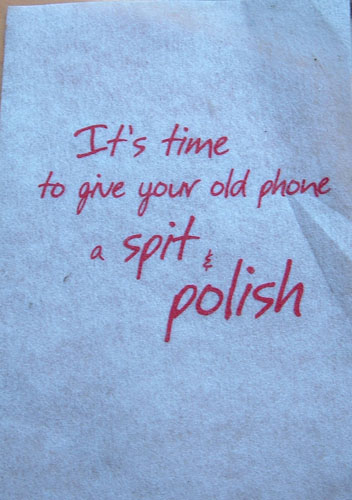 It's time
to give your old phone
a spit &
polish